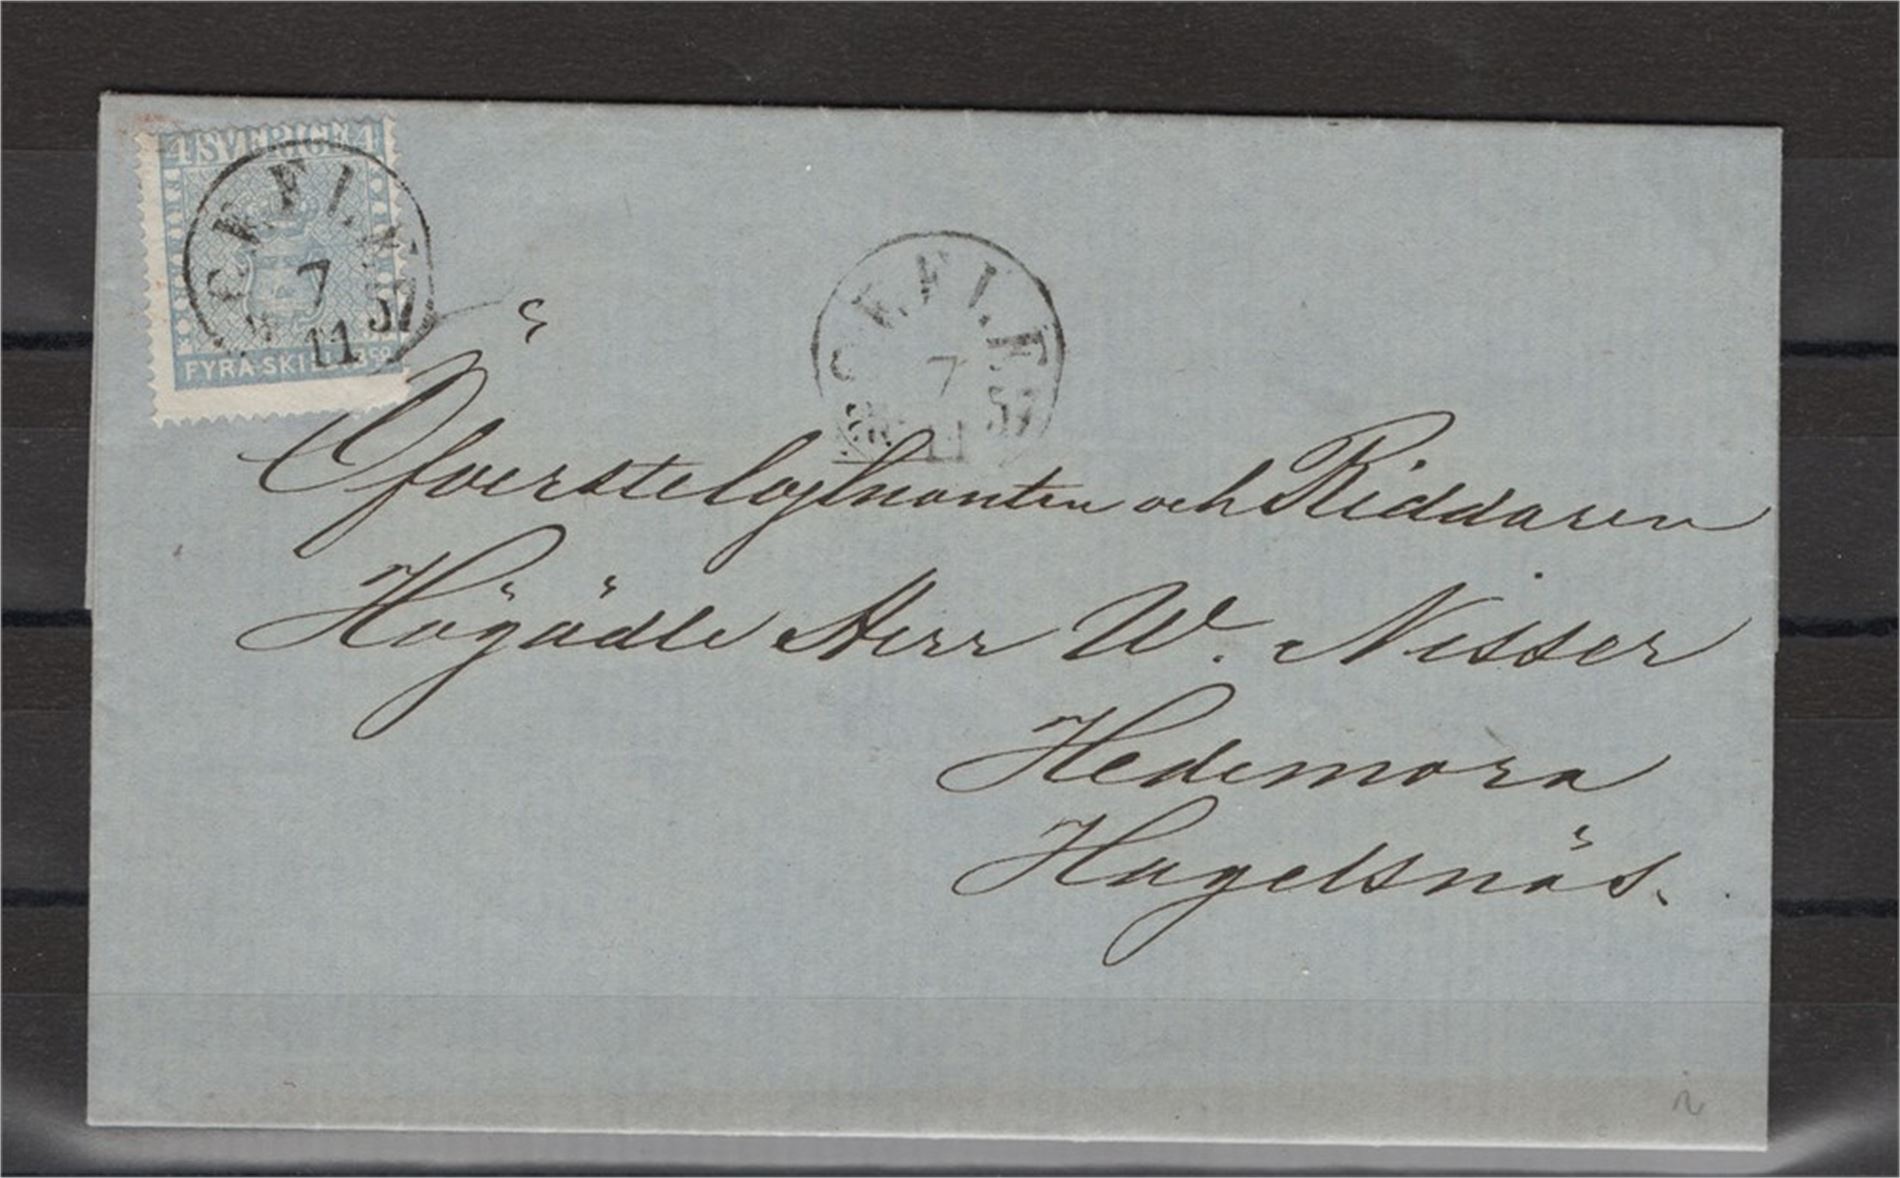 4 SVERIGE 4
7
11
57
FYRA SKILL. Bco
7
11
57
Öfverstelöjtnanten och Riddaren
Högädle Herr W. Nisser
Hedemora
Hagelsnäs.